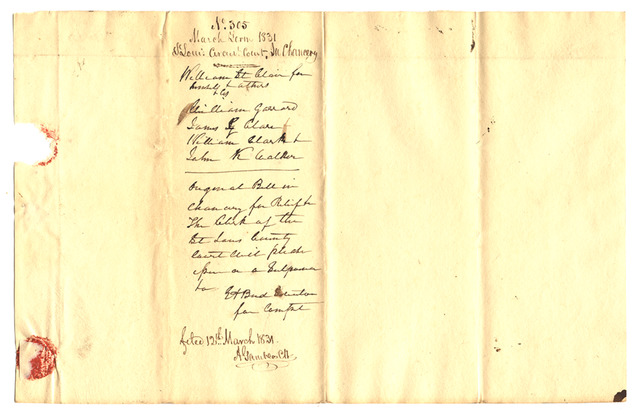 No 305
March Term 1831
St Louis Circuit Court, In Chancery
William St Clair for
himself & others
William Garrard
James G Clare
William Clark &
John K Walker
Original Bill in
chancery for Relief &
The Clerk of the
St Louis County
Court will please
issue a Subpoena
to
for Complt
filed 12th March 1831
A Gamble Clk